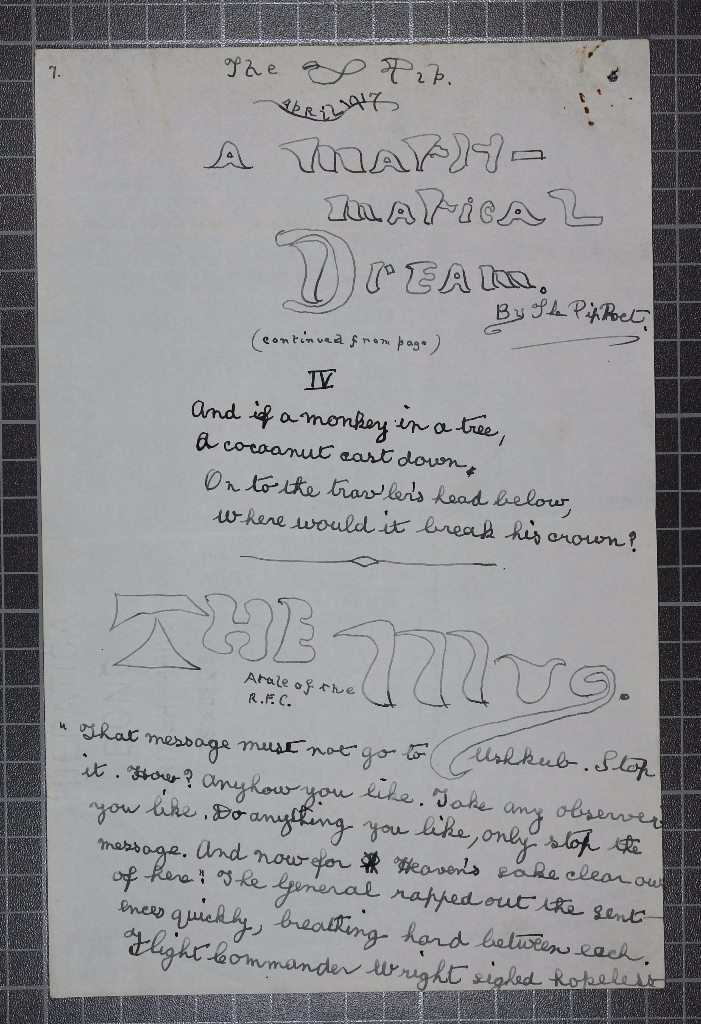 7.
The Pip.
APRIL 1917
A MATH-
MATICAL
DREAM.
By The Pip Poet.
(continued from page)
IV
And if a monkey in a tree,
A cocoanut cast down,
On to the trav'ler's head below,
Where would it break his crown?
THE MUG.
A tale of the
R.F.C.
"That message must not go to Ushkub. Stop
it. How? Anyhow you like. Take any observer
you like. Do anything you like, only stop the
message. And now for Heaven's sake clear out
of here." The General rapped out the sent-
ences quickly, breathing hard between each.
Flight Commander Wright sighed hopeless